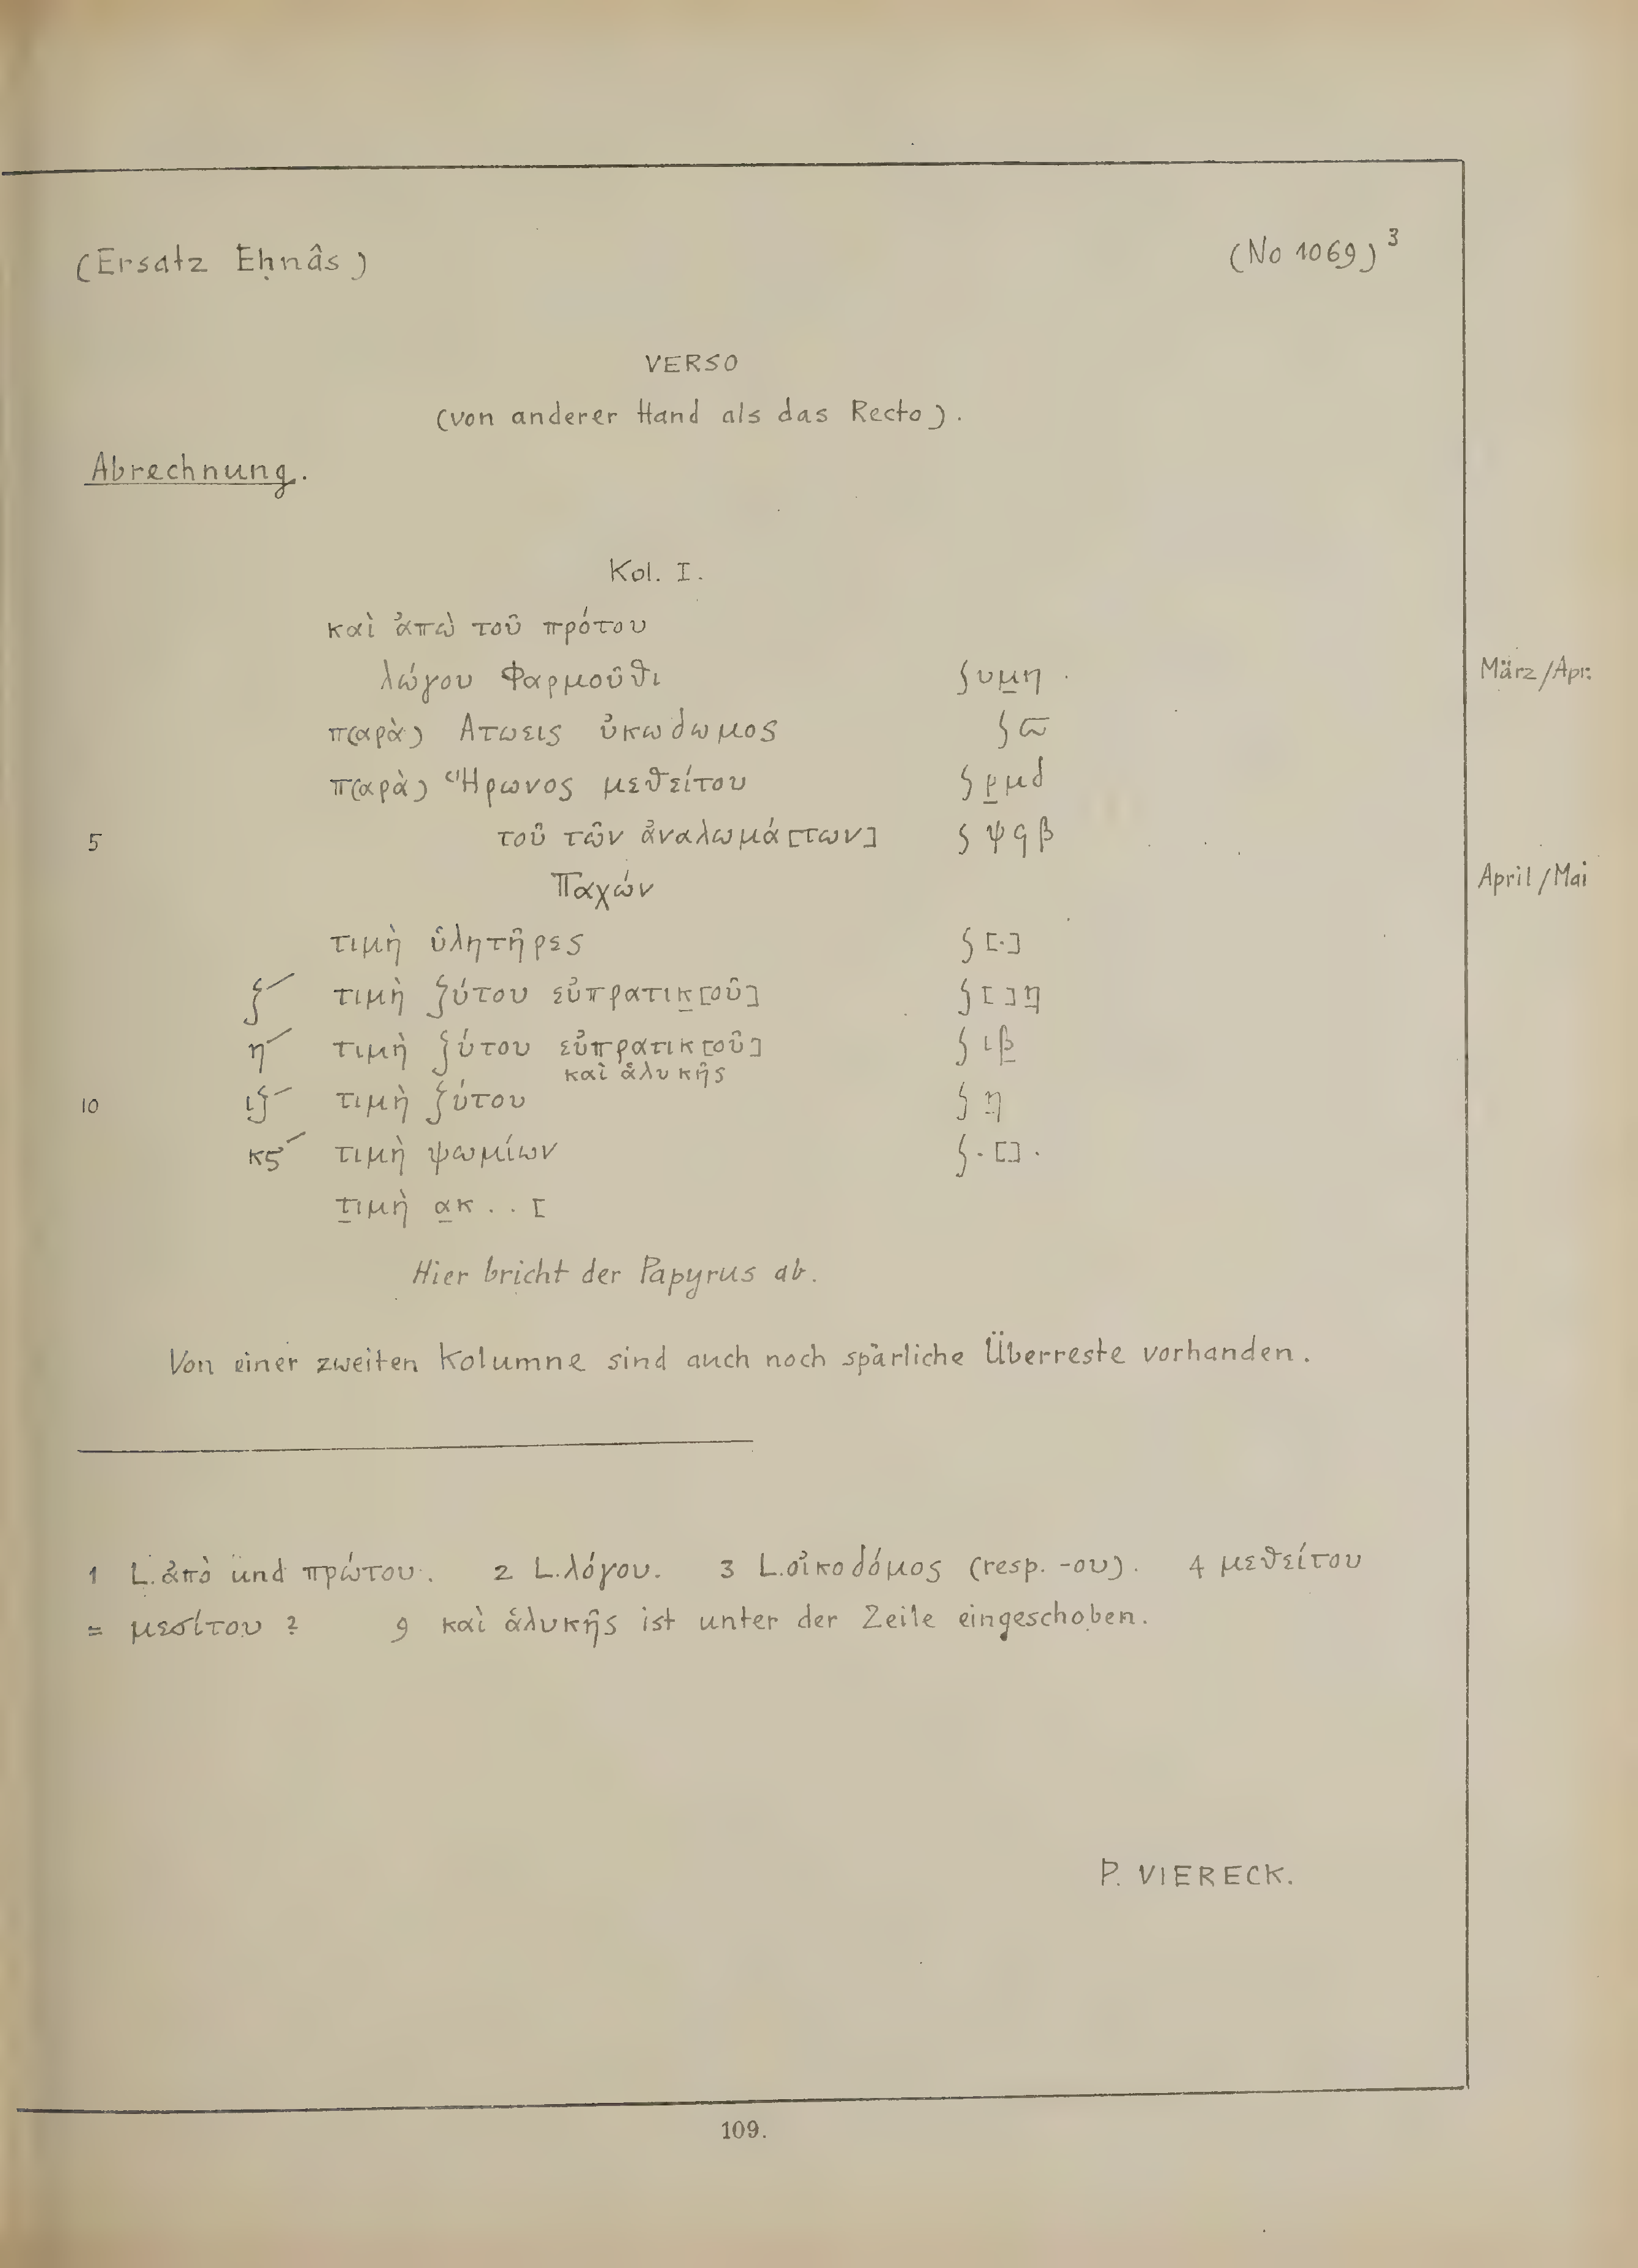 (Ersatz Eḥnâs) (No 1069)³
VERSO
(von anderer Hand als das Recto).
Abrechnung.
Kol. I.
καὶ ἀπὼ τοῦ πρότου
λώγου Φαρμοῦθι ʃ υμ̣η März/Apr.
π(αρὰ) Ατωεις ὐκωδωμος ʃ ϖ
π(αρὰ) Ἥρωνος μεθείτου ʃ ρ̣μδ
5 τοῦ τῶν ἀναλωμά[των] ʃ ψϙβ
Παχών April/Mai
τιμὴ ὑλητῆρες ʃ [.]
ζ´ τιμὴ ζύτου εὐπρατικ̣[οῦ] ʃ [ ]η̣
η´ τιμὴ ζύτου εὐπρατικ[οῦ] ʃ ιβ̣
καὶ ἁλυκῆς
10 ιζ´ τιμὴ ζύτου ʃ η̣
κϛ´ τιμὴ ψωμίων ʃ . [ ] .
τ̣ιμὴ α̣κ . . [
Hier bricht der Papyrus ab.
Von einer zweiten Kolumne sind auch noch spärliche Überreste vorhanden.
1 L. ἀπὸ und πρώτου. 2 L. λόγου. 3 L. οἰκοδόμος (resp. -ου). 4 μεθείτου
= μεσίτου ? 9 καὶ ἁλυκῆς ist unter der Zeile eingeschoben.
P. VIERECK.
109.